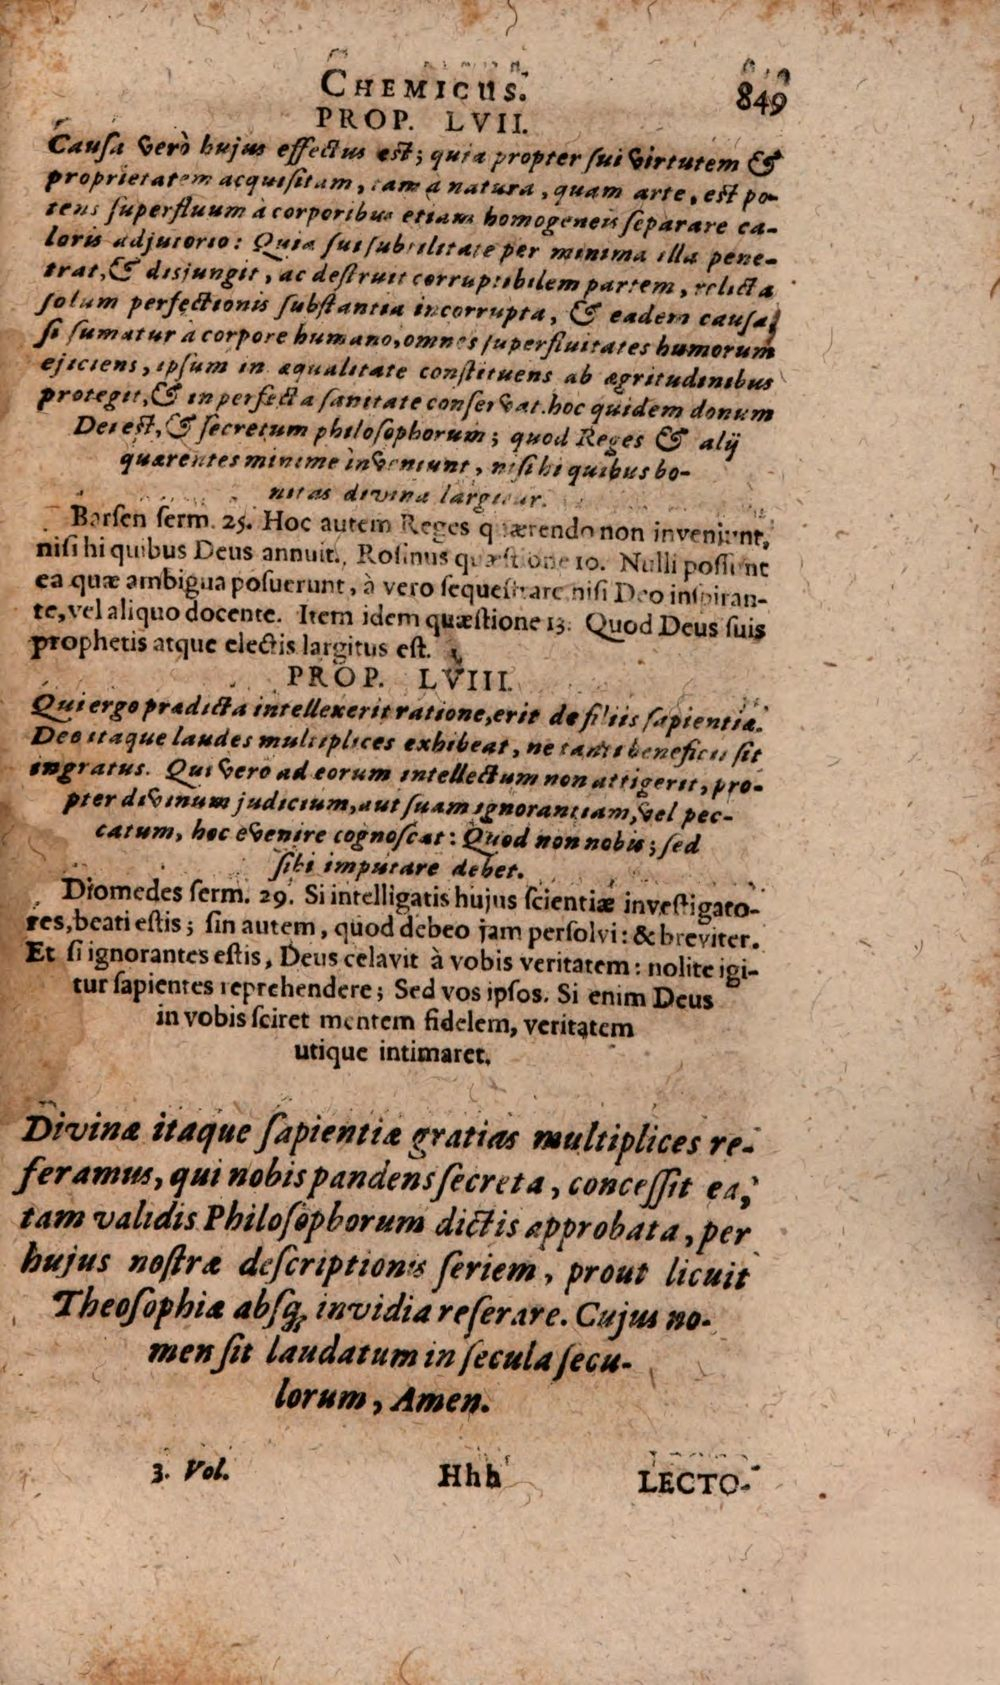 CHEMICUS. 849
PROP. LVII.
Cauſa verò hujus effectus est; quia propter ſui virtutem &
proprietatem acquiſitam, tam a natura, quam arte, est po-
tens ſuperfluum à corporibus etiam homogeneis ſeparare ca-
loris adjutorio: Quia ſui ſubtilitate per minima illa pene-
trat, & disjungit, ac deſtruit corruptibilem partem, relicta
ſolum perfectionis ſubſtantia incorrupta, & eadem cauſa,
ſi ſumatur à corpore humano, omnes ſuperfluitates humorum
ejiciens, ipſum in æqualitate conſtituens ab ægritudinibus
protegit, & in perfecta ſanitate conſervat. hoc quidem donum
Dei eſt, & ſecretum philoſophorum; quod Reges & alij
quærentes minime inveniunt, niſi hi quibus bo-
nitas divina largitur.
Barſen ſerm. 25. Hoc autem Reges quærendo non inveniunt,
niſi hi quibus Deus annuit. Roſinus quæſtione 10. Nulli poſſunt
ea quæ ambigua poſuerunt, à vero ſequeſtrare niſi Deo inſpiran-
te, vel aliquo docente. Item idem quæſtione 13. Quod Deus ſuis
prophetis atque electis largitus eſt.
PROP. LVIII.
Qui ergo prædicta intellexerit ratione, erit de filiis ſapientiæ.
Deo itaque laudes multiplices exhibeat, ne tanti beneficii ſit
ingratus. Qui vero ad eorum intellectum non attigerit, pro-
pter divinum judicium, aut ſuam ignorantiam, vel pec-
catum, hoc evenire cognoſcat: Quod non nobis; ſed
ſibi imputare debet.
Diomedes ſerm. 29. Si intelligatis hujus ſcientiæ inveſtigato-
res, beati eſtis; ſin autem, quod debeo jam perſolvi: & breviter.
Et ſi ignorantes eſtis, Deus celavit à vobis veritatem: nolite igi-
tur ſapientes reprehendere; Sed vos ipſos. Si enim Deus
in vobis ſciret mentem fidelem, veritatem
utique intimaret.
Divinæ itaque ſapientiæ gratias multiplices re-
feramus, qui nobis pandens ſecreta, conceſſit ea,
tam validis Philoſophorum dictis approbata, per
hujus noſtræ deſcriptionis ſeriem, prout licuit
Theoſophiæ abſq; invidia reſerare. Cujus no-
men ſit laudatum in ſecula ſecu-
lorum, Amen.
3. Vol. Hhh LECTO-